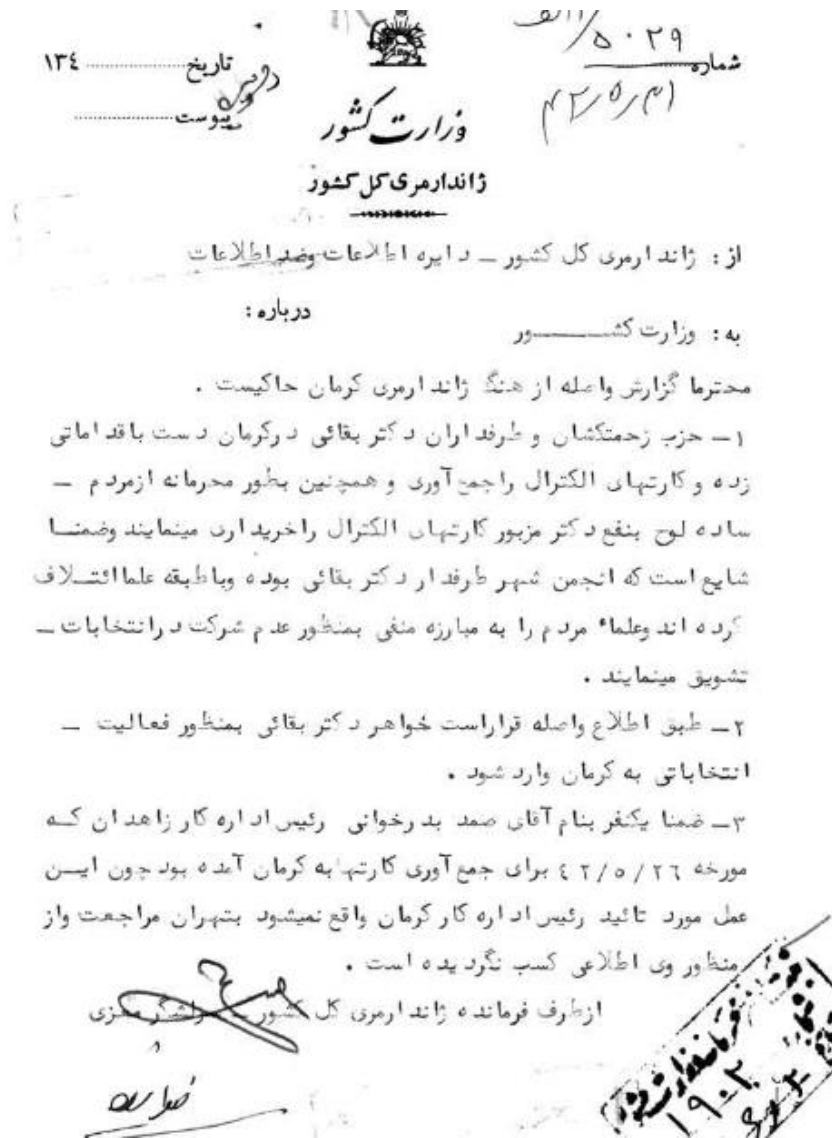 شماره ۵۰۲۹/
۴۲/۵/۳۱
تاریخ ۱۳۴
پیوست
وزارت کشور
ژاندارمری کل کشور
از : ژاندارمری کل کشور ــ دایره اطلاعات وضد اطلاعات
درباره :
به : وزارت کشـــــور
محترما گزارش واصله از هنگ ژاندارمری کرمان حاکیست .
۱ــ حزب زحمتکشان و طرفداران دکتر بقائی درکرمان دست باقداماتی
زده و کارتهای الکترال راجمع آوری و همچنین بطور محرمانه ازمردم ــ
ساده لوح بنفع دکتر مزبور کارتهای الکترال راخریداری مینمایند وضمنـا
شایع است که انجمن شهر طرفدار دکتر بقائی بوده وباطبقه علماائتـلاف
کرده اند وعلماء مردم را به مبارزه منفی بمنظور عدم شرکت درانتخابات ــ
تشویق مینمایند .
۲ــ طبق اطلاع واصله قراراست خواهر دکتر بقائی بمنظور فعالیت ــ
انتخاباتی به کرمان وارد شود .
۳ــ ضمنا یکنفر بنام آقای صمد بدرخوانی رئیس اداره کار زاهدان کـه
مورخه ۴۲/۵/۲۶ برای جمع آوری کارتها به کرمان آمده بود چون ایـن
عمل مورد تائید رئیس اداره کار کرمان واقع نمیشود بتهران مراجعت واز
منظور وی اطلاعی کسب نگردیده است .
ازطرف فرمانده ژاندارمری کل کشور ــ
۱۹۰۲